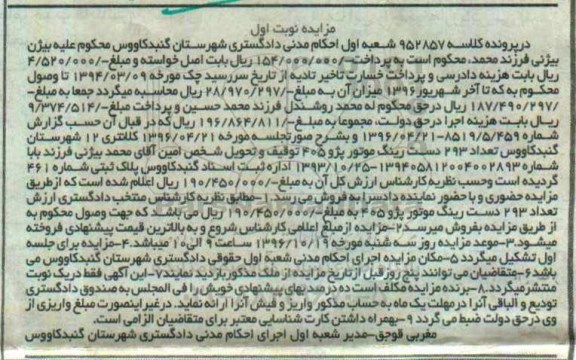 مزایده نوبت اول
درپرونده کلاسه ۹۵۲۸۵۷ شعبه اول احکام مدنی دادگستری شهرستان گنبدکاووس محکوم علیه بیژن
بیژنی فرزند محمد، محکوم است به پرداخت-/۱۵۴/۰۰۰/۰۰۰ ریال بابت اصل خواسته و مبلغ-/۴/۵۲۰/۰۰۰
ریال بابت هزینه دادرسی و پرداخت خسارت تاخیر تادیه از تاریخ سررسید چک مورخه ۱۳۹۴/۰۳/۰۹ تا وصول
محکوم به که تا آخر شهریور ۱۳۹۶ میزان آن به مبلغ-/۲۸/۹۷۰/۲۹۷ ریال محاسبه میگردد جمعا به مبلغ-
/۱۸۷/۴۹۰/۲۹۷ ریال درحق محکوم له محمد روشندل فرزند محمد حسین و پرداخت مبلغ-/۹/۳۷۴/۵۱۴
ریال بابت هزینه اجرا درحق دولت، مجموعا به مبلغ-/۱۹۶/۸۶۴/۸۱۱ ریال که در قبال آن حسب گزارش
شماره ۸۵۱۹/۵/۴۵۹-۱۳۹۶/۰۴/۲۱ و بشرح صورتجلسه مورخه ۱۳۹۶/۰۴/۲۱ کلانتری ۱۲ شهرستان
گنبدکاووس تعداد ۲۹۳ دست رینگ موتور پژو ۴۰۵ توقیف و تحویل شخص امین آقای محمد بیژنی فرزند بابا
شماره ۱۳۹۴۰۵۸۱۲۰۰۴۰۰۲۸۹۳-۱۳۹۳/۱۰/۲۵ اداره ثبت اسناد گنبدکاووس پلاک ثبتی شماره ۴۶۱
گردیده است وحسب نظریه کارشناس ارزش کل آن به مبلغ-/۱۹۰/۴۵۰/۰۰۰ ریال اعلام شده است که ازطریق
مزایده حضوری و با حضور نماینده دادسرا به فروش می رسد.۱- مطابق نظریه کارشناس منتخب دادگستری ارزش
تعداد ۲۹۳ دست رینگ موتور پژو ۴۰۵ به مبلغ-/۱۹۰/۴۵۰/۰۰۰ ریال می باشد که جهت وصول محکوم به
از طریق مزایده بفروش میرسد۲-مزایده از مبلغ اعلامی کارشناس شروع و به بالاترین قیمت پیشنهادی فروخته
میشود.۳-موعد مزایده روز سه شنبه مورخه ۱۳۹۶/۱۰/۱۹ ساعت ۹ الی۱۰ میباشد.۴-مزایده برای جلسه
اول تشکیل میگردد ۵-مکان مزایده اجرای احکام مدنی شعبه اول حقوقی دادگستری شهرستان گنبدکاووس می
باشد۶-متقاضیان می توانند پنج روز قبل از تاریخ مزایده از ملک مذکور بازدید نمایند۷-این آگهی فقط دریک نوبت
منتشر میگردد.۸-برنده مزایده مکلف است ده درصد بهای پیشنهادی خویش را فی المجلس به صندوق دادگستری
تودیع و الباقی آنرا درمهلت یک ماه به حساب مذکور واریز و فیش آنرا ارائه نماید. درغیر اینصورت مبلغ واریزی از
وی درحق دولت ضبط می گردد ۹-بهمراه داشتن کارت شناسایی معتبر برای متقاضیان الزامی است.
مغربی قوجق-مدیر شعبه اول اجرای احکام مدنی دادگستری شهرستان گنبدکاووس